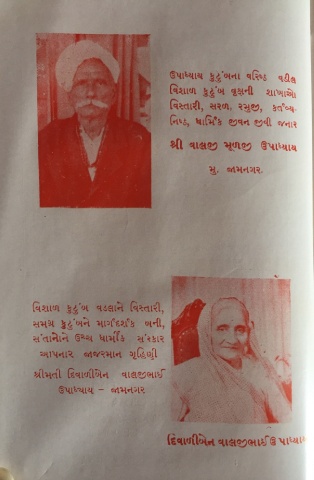 ઉપાધ્યાય કુટુંબના વરિષ્ઠ વડીલ
વિશાળ કુટુંબ વૃક્ષની શાખાઓ
વિસ્તારી, સરળ, રમુજી, કર્તવ્ય-
નિષ્ઠ, ધાર્મિક જીવન જીવી જનાર
શ્રી વાલજી મૂળજી ઉપાધ્યાય
મુ. જામનગર.
વિશાળ કુટુંબ વડલાને વિસ્તારી,
સમગ્ર કુટુંબને માર્ગદર્શક બની,
સંતાનોને ઉચ્ચ ધાર્મીક સંસ્કાર
આપનાર જાજરમાન ગૃહિણી
શ્રીમતી દિવાળીબેન વાલજીભાઈ
ઉપાધ્યાય - જામનગર
દિવાળીબેન વાલજીભાઈ ઉપાધ્યાય